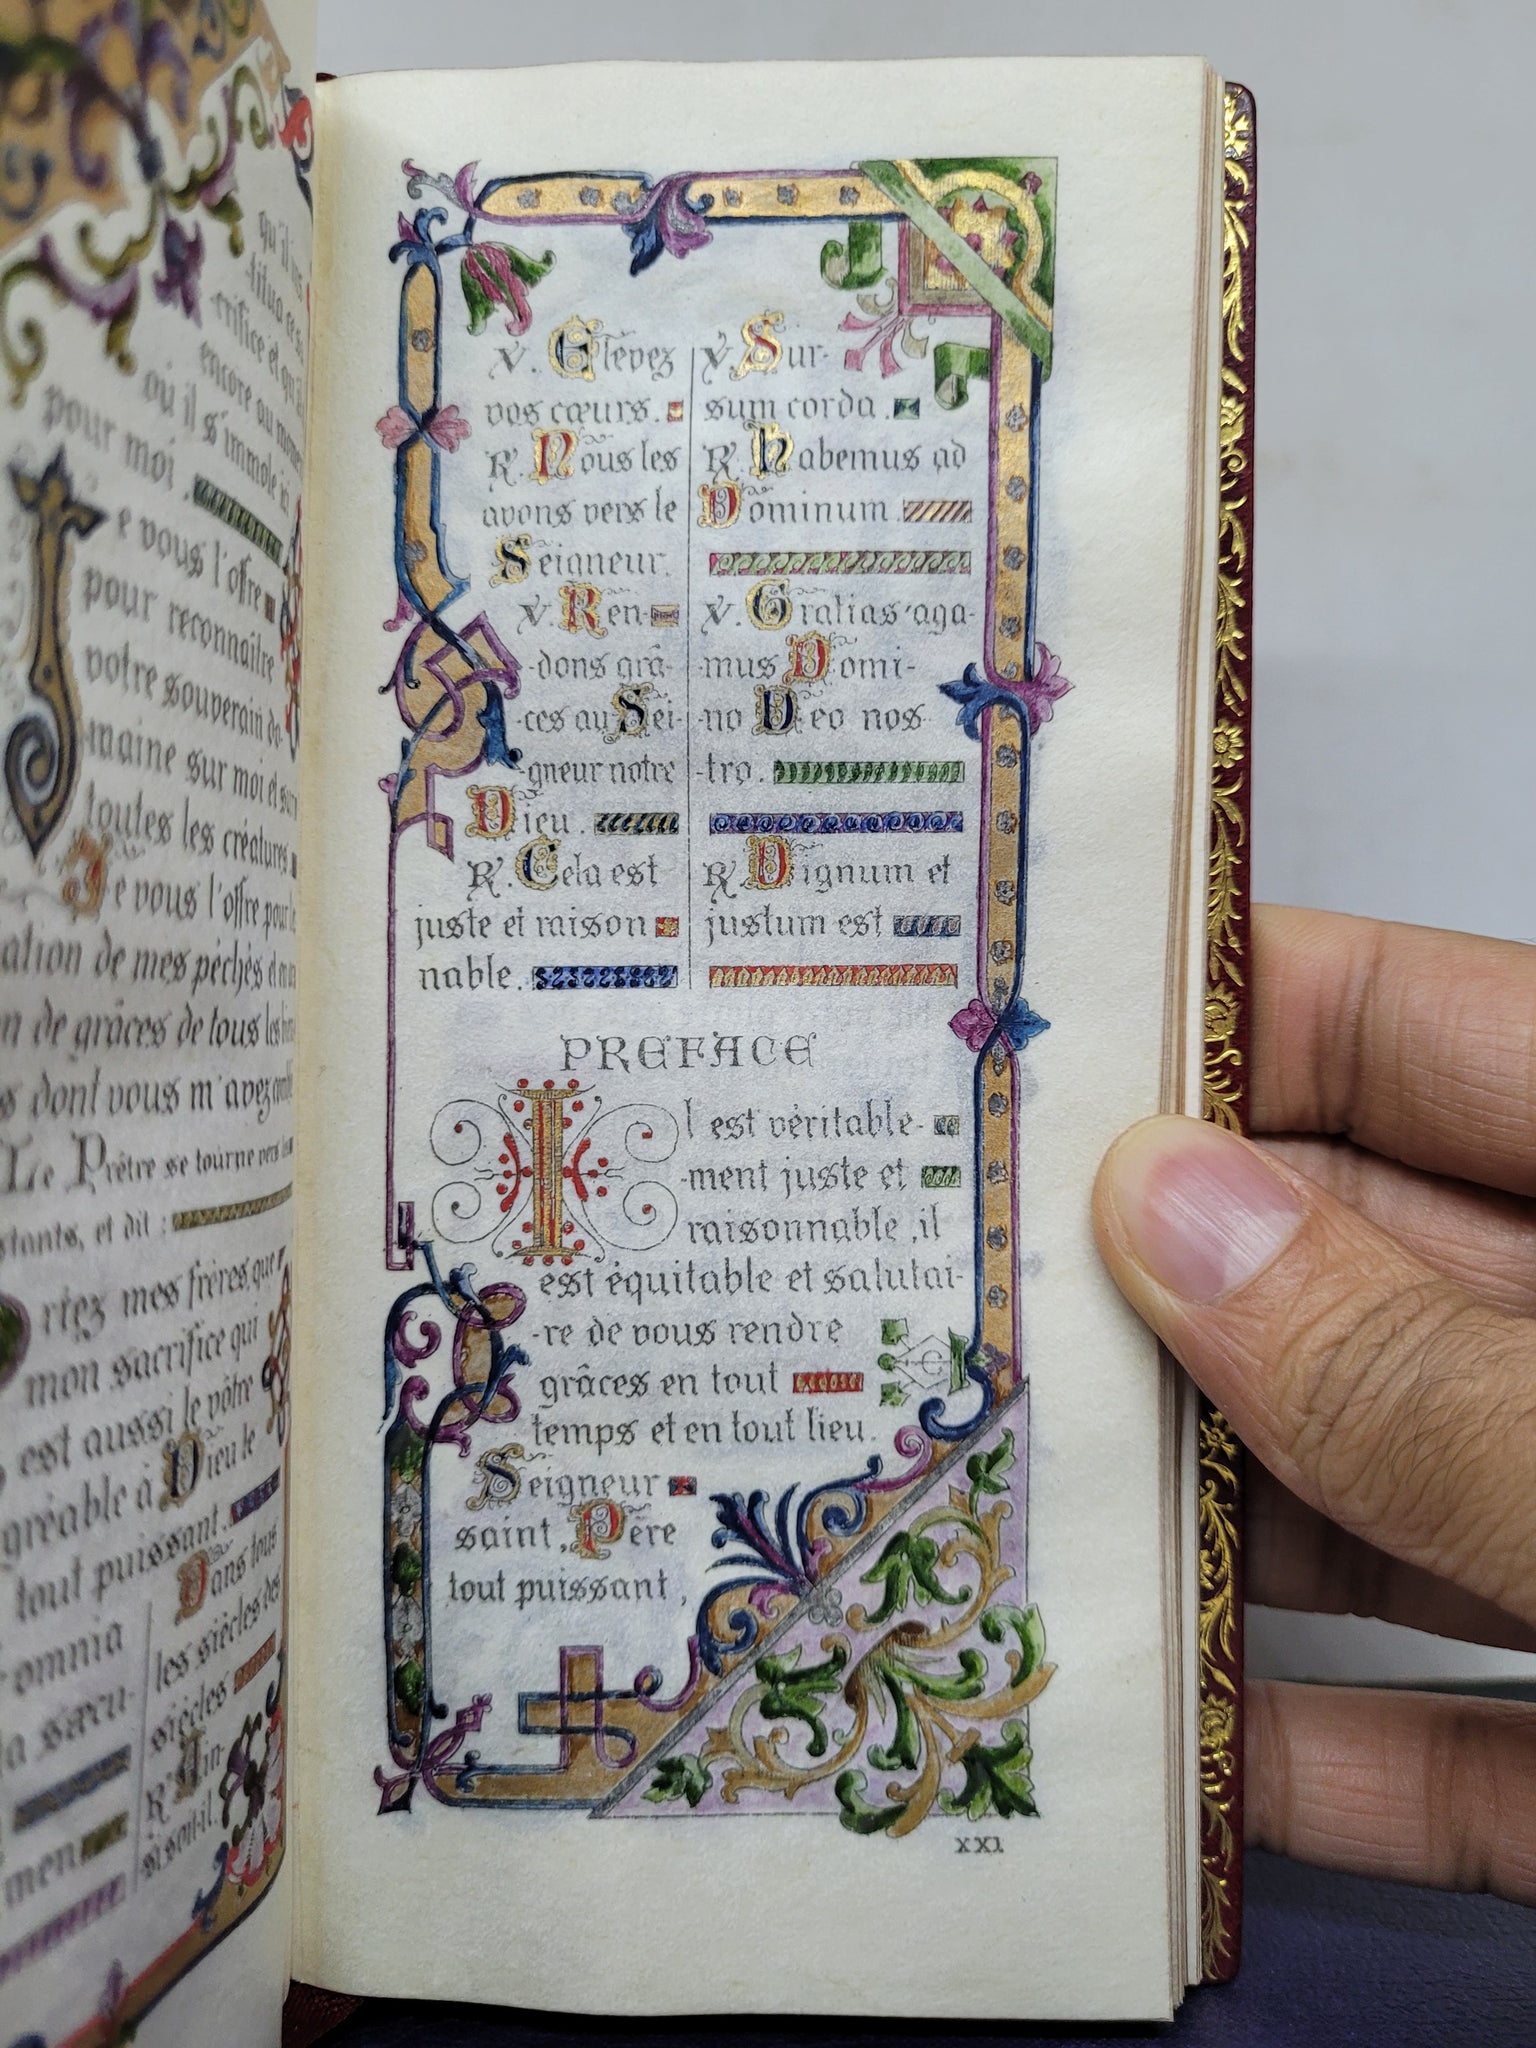 qu'il ins-
titua ce sa-
crifice et qu'il
encore au moment
où il s'immole ici
pour moi.
Je vous l'offre
pour reconnaître
votre souverain do-
maine sur moi et sur
toutes les créatures
Je vous l'offre pour
ation de mes péchés et en
n de grâces de tous les
s dont vous m'avez
Le Prêtre se tourne vers
stants, et dit :
Priez mes frères, que
mon sacrifice qui
est aussi le vôtre
gréable à Dieu le
tout puissant.
omnia
a sæcu-
men
Dans tous
les siècles des
siècles
R. Ain-
si soit-il.
V. Elevez
vos cœurs.
R. Nous les
avons vers le
Seigneur.
V. Ren-
-dons grâ-
-ces au Sei-
-gneur notre
Dieu.
R. Cela est
juste et raison
nable.
V. Sur-
sum corda.
R. Habemus ad
Dominum
V. Gratias aga-
-mus Domi-
-no Deo nos
-tro.
R. Dignum et
justum est
PREFACE
Il est véritable-
-ment juste et
raisonnable, il
est équitable et salutai-
-re de vous rendre
grâces en tout
temps et en tout lieu.
Seigneur
saint, Père
tout puissant,
XXI